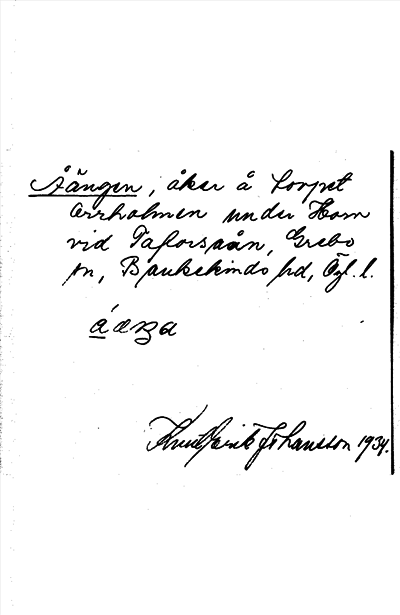 Åängen, åker å torpet
Orrholmen under Horn
vid Taforsaån, Grebo
sn, Bankekinds hd, Ög. l.
Knut Erik Johansson 1934.